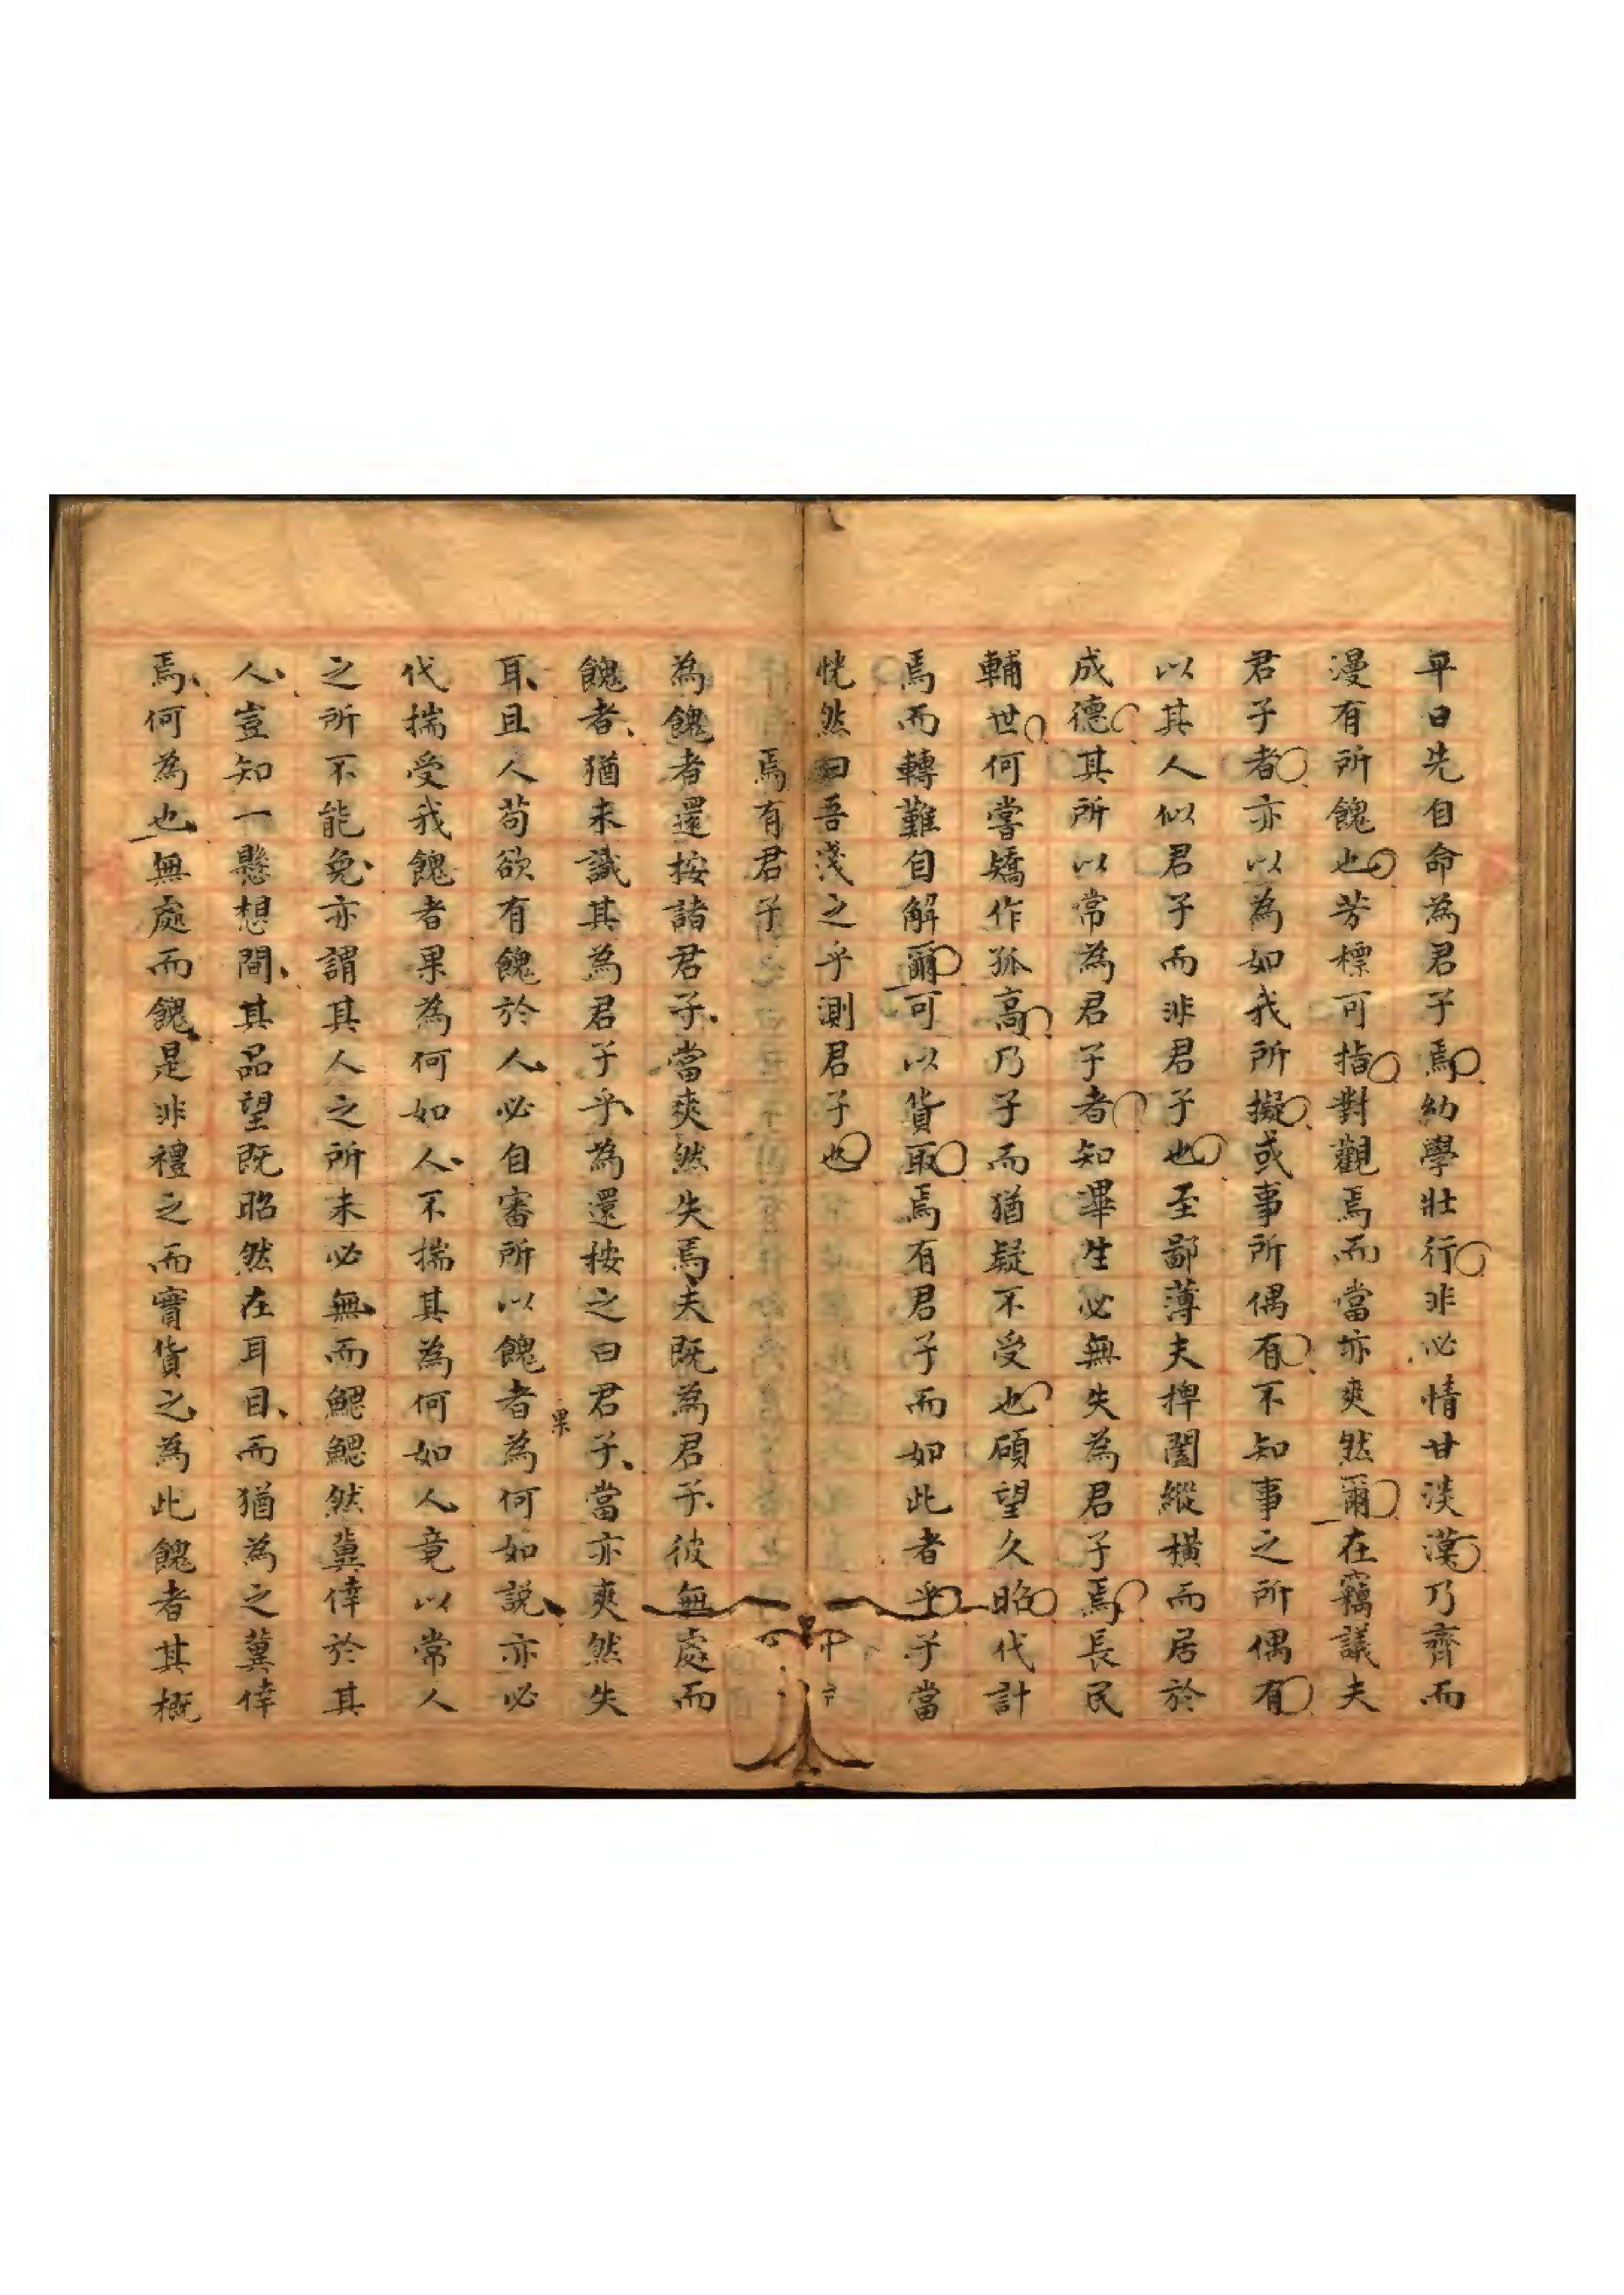 平日先自命為君子焉幼學壯行非必情甘淡漠乃齊而
漫有所餽也芳標可指對觀焉而當亦爽然爾在竊議夫
君子者亦以為如我所擬或事所偶有不知事之所偶有
以其人似君子而非君子也至鄙薄夫捭闔縱橫而居於
成德其所以常為君子者知畢生必無失為君子焉長民
輔世何嘗矯作孤高乃子而猶疑不受也碩望久昭代計
焉而轉難自解爾可以貨取焉有君子而如此者乎子當
恍然曰吾淺之乎測君子也
焉有君子
為餽者還按諸君子當爽然失焉夫既為君子彼無處而
餽者猶未識其為君子乎為還按之曰君子當亦爽然失
耳且人苟欲有餽於人必自審所以餽者為何如說亦必
果
代揣受我餽者果為何如人不揣其為何如人竟以常人
之所不能免亦謂其人之所未必無而鰓鰓然冀倖於其
人豈知一懸想間其品望既昭然在耳目而猶為之冀倖
焉何為也無處而餽是非禮之而實貨之為此餽者其概